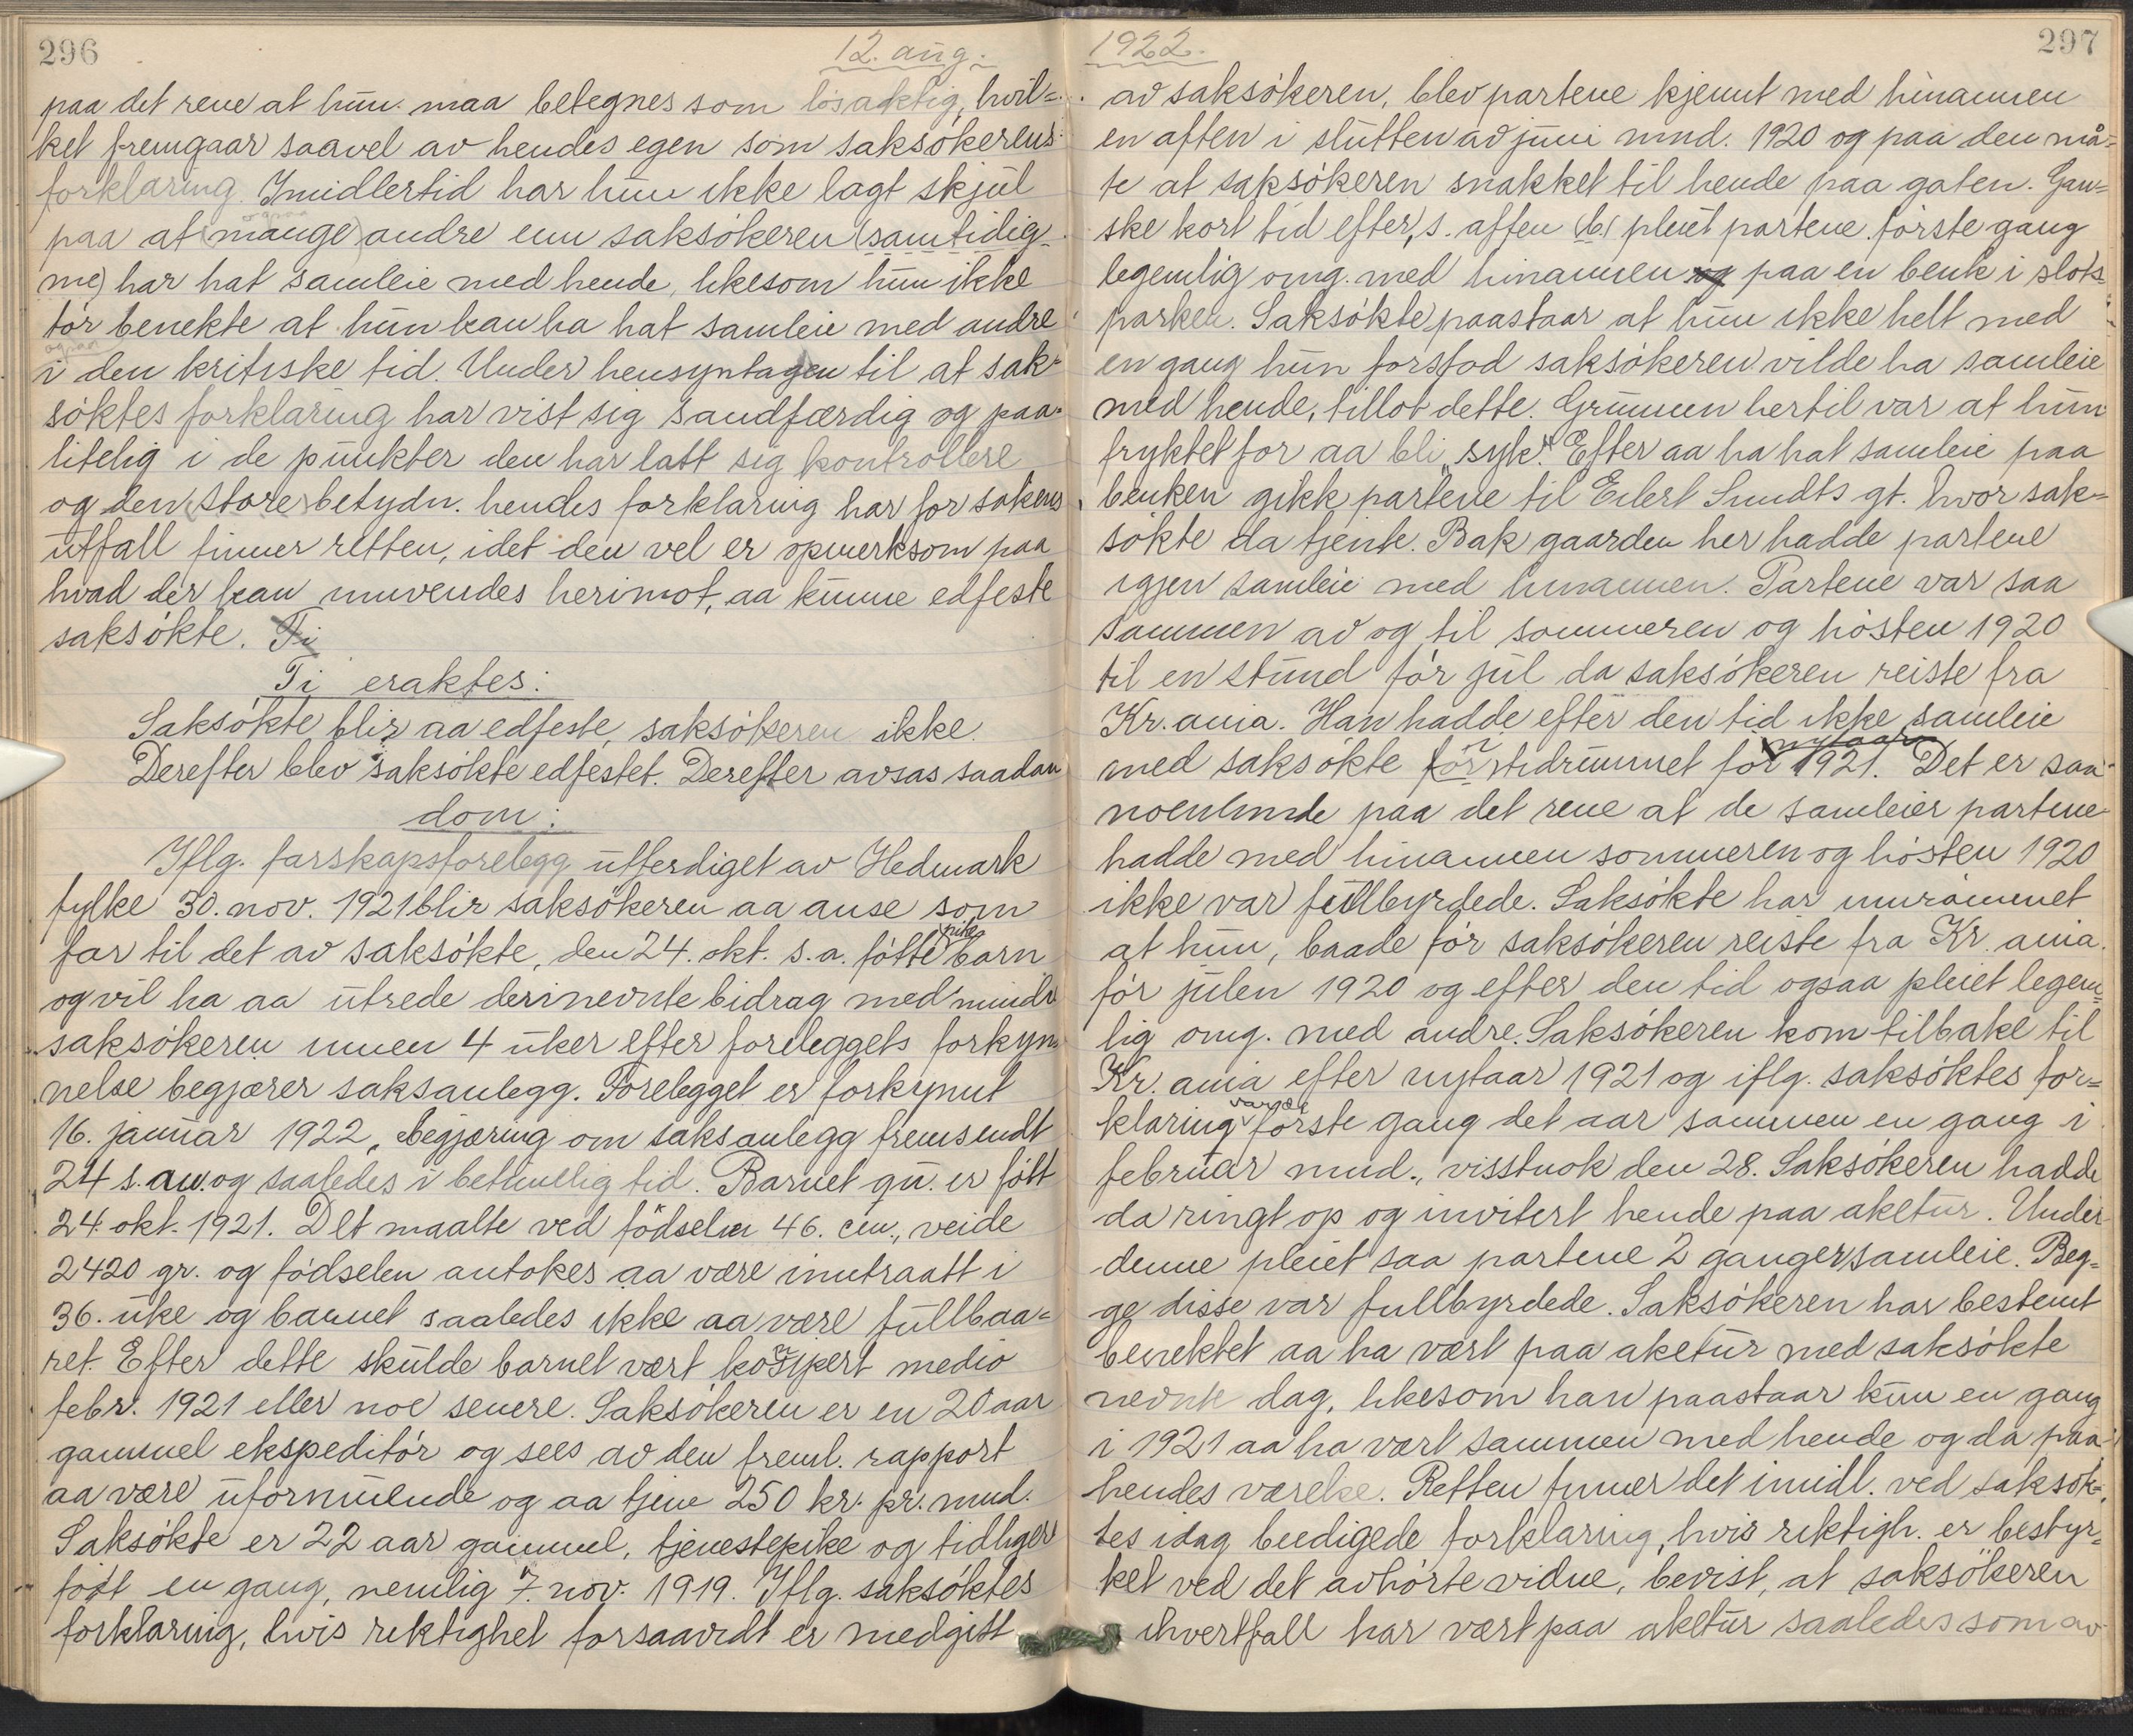 296
12. aug.
paa det rene at hun maa betegnes som løsaktig, hvil=
ket fremgaar saavel av hendes egen som saksøkerens
forklaring. Imidlertid har hun ikke lagt skjul
paa at (mange) ogsaa andre enn saksøkeren (samtidig
me) har hat samleie med hende, likesom hun ikke
tør benekte at hun kan ha hat samleie med andre
ogsaa i den kritiske tid. Under hensyntagen til at sak-
søktes forklaring har vist sig sandfærdig og paa-
litelig i de punkter den har latt sig kontrollere
og den store betydn. hendes forklaring har for sakens
utfall finner retten, idet den vel er opmerksom paa
hvad der kan innvendes herimot, aa kunne edfeste
saksøkte. Ti
Ti eraktes:
Saksøkte blir aa edfeste, saksøkeren ikke.
Derefter blev saksøkte edfestet. Derefter avsas saadan
dom:
Iflg. farskapsforelegg utferdiget av Hedmark
fylke 30. nov. 1921 blir saksøkeren aa anse som
far til det av saksøkte, den 24. okt. s. a. føtte pike barn
og vil ha aa utrede derinevnte bidrag med mindre
saksøkeren innen 4 uker efter foreleggets forkyn=
nelse begjærer saksanlegg. Forelegget er forkynnt
16. januar 1922, begjæring om saksanlegg fremsendt
24 s. m. og saaledes i betimelig tid. Barnet qu. er føtt
24. okt. 1921. Det maalte ved fødselen 46. cm., veide
2420 gr. og fødselen antokes aa være inntraatt i
36. uke og barnet saaledes ikke aa være fullbaa=
ret. Efter dette skulde barnet vært konsipert medio
febr. 1921 eller noe senere. Saksøkeren er en 20 aar
gammel ekspeditør og sees av den freml. rapport
aa være uformuende og aa tjene 250 kr. pr. mnd.
Saksøkte er 22 aar gammel, tjenestepike og tidligere
født en gang, nemlig 7. nov. 1919. Iflg. saksøktes
forklaring, hvis riktighet forsaavidt er medgitt
1922.
297
av saksøkeren, blev partene kjennt med hinannen
en aften i slutten av juni mnd. 1920 og paa den må=
te at saksøkeren snakket til hende paa gaten. Gan=
ske kort tid efter, s. aften (b.) pleiet partene første gang
legemlig omg. med hinannen og paa en benk i slots=
parken. Saksøkte paastaar at hun ikke helt med
en gang hun forstod saksøkeren vilde ha samleie
med hende, tillot dette. Grunnen hertil var at hun
fryktet for aa bli „syk". Efter aa ha hat samleie paa
benken gikk partene til Eilert Sundts gt. hvor sak=
søkte da tjente. Bak gaarden her hadde partene
igjen samleie med hinannen. Partene var saa
sammen av og til sommeren og høsten 1920
til en stund før jul da saksøkeren reiste fra
Kr.ania. Han hadde efter den tid ikke samleie
med saksøkte før i tidrummet før nytaar 1921. Det er saa
noenlunde paa det rene at de samleier partene
hadde med hinannen sommeren og høsten 1920
ikke var fullbyrdede. Saksøkte har innrømmet
at hun, baade før saksøkeren reiste fra Kr.ania
før julen 1920 og efter den tid ogsaa pleiet legem=
lig omg. med andre. Saksøkeren kom tilbake til
Kr.ania efter nytaar 1921 og iflg. saksøktes for=
klaring var de første gang det aar sammen en gang i
februar mnd., visstnok den 28. Saksøkeren hadde
da ringt op og invitert hende paa aketur. Under
denne pleiet saa partene 2 ganger samleie. Beg=
ge disse var fullbyrdede. Saksøkeren har bestemt
benektet aa ha vært paa aketur med saksøkte
nevnte dag, likesom han paastaar kun en gang
i 1921 aa ha vært sammen med hende og da paa
hendes værelse. Retten finner det imidl. ved saksøk-
tes idag beedigede forklaring, hvis riktigh. er bestyr=
ket ved det avhørte vidne, bevist, at saksøkeren
ihvertfall har vært paa aketur saaledes som av